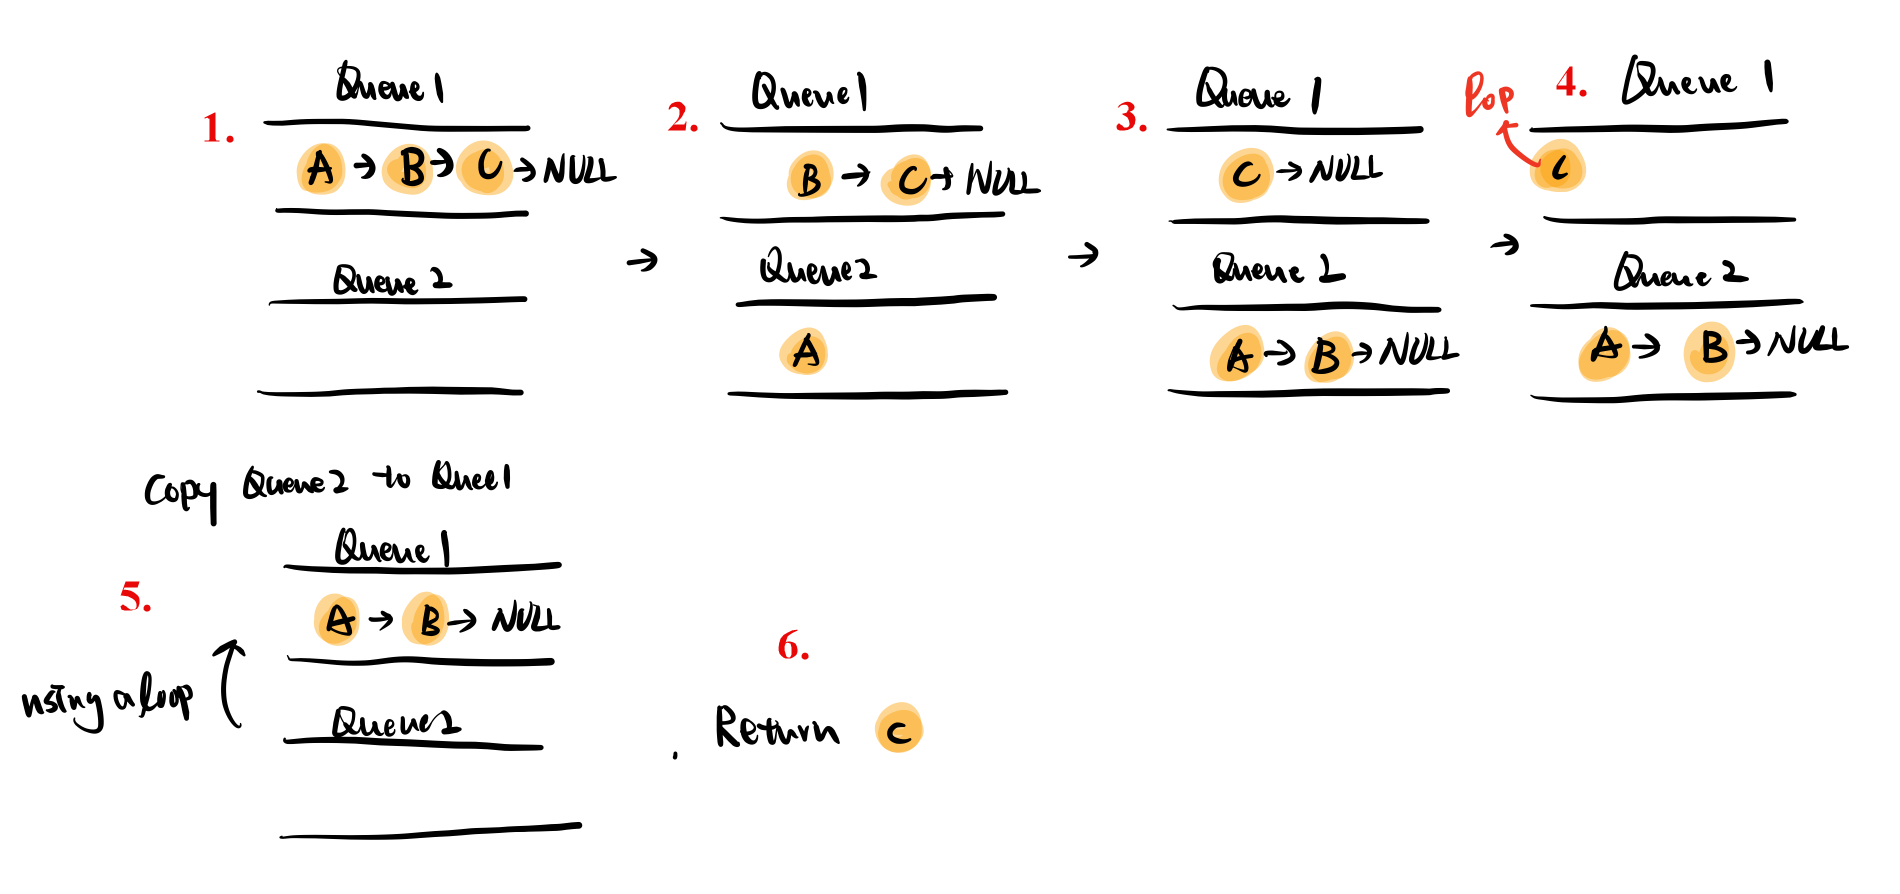 1.
Queue 1
A → B → C → NULL
Queue 2
→
2.
Queue 1
B → C → NULL
Queue 2
A
→
3.
Queue 1
C → NULL
Queue 2
A → B → NULL
→
Pop
4.
Queue 1
C
Queue 2
A → B → NULL
Copy Queue 2 to Quee 1
5.
Queue 1
A → B → NULL
using a loop
Queue 2
6.
Return C